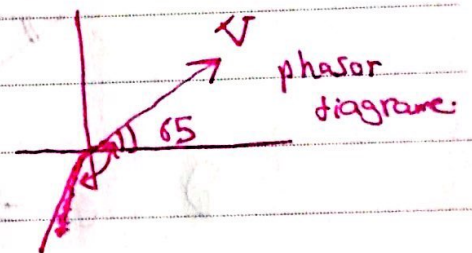 V
phasor
diagrame.
65